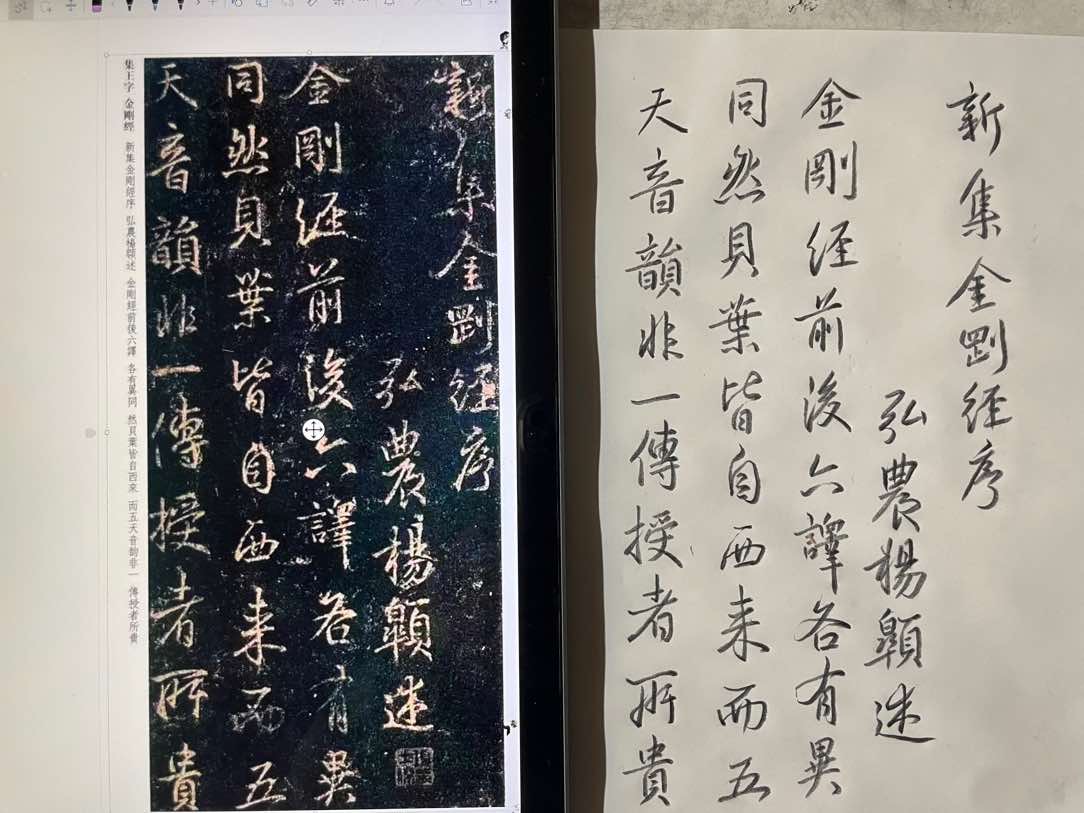 集王字 金剛經 新集金剛經序 弘農楊顗述 金剛經前後六譯 各有異同 然貝葉皆自西來 而五天音韵非一 傳授者所貴
新集金剛經序
弘農楊顗述
金剛經前後六譯各有異
同然貝葉皆自西来而五
天音韻非一傳授者所貴
新集金剛經序
弘農楊顗述
金剛經前後六譯各有異
同然貝葉皆自西来而五
天音韻非一傳授者所貴